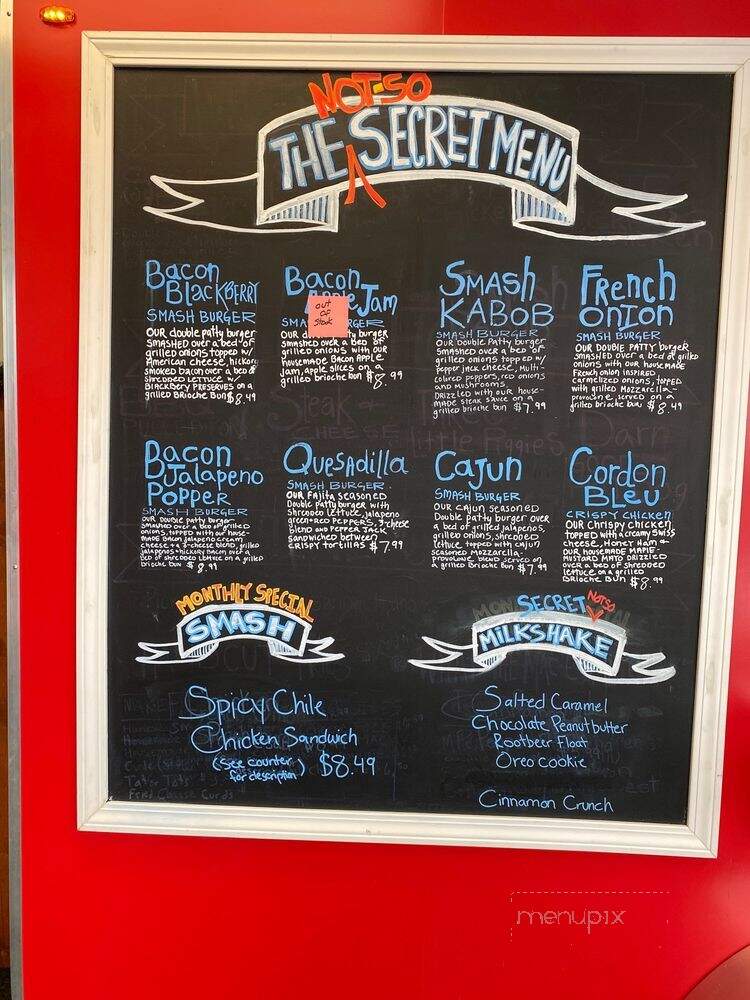 NOT-SO
THE SECRET MENU
Bacon
BLACKBERRY
SMASH BURGER
OUR double patty burger
SMASHED over a bed of
grilled onions topped w/
American cheese, hickory
smoked bacon over a bed of
SHREDDED LETTUCE w/
BLACKBERRY PRESERVES on a
grilled BRIOCHE BUN $8.49
Bacon
Jam
out
of
Stock
smashed over a bed of
grilled onions with OUR
housemade BACON APPLE
Jam, apple slices on a
grilled brioche bun $8.99
SMASH
KABOB
SMASH BURGER
Our Double Patty Burger
smashed over a bed of
grilled onions topped w/
pepper jack cheese, Multi-
colored peppers, red onions
and mushrooms.
DRIZZLED with our house-
made steak sauce on a
grilled brioche bun $7.99
French
ONION
SMASH BURGER
OUR DOUBLE PATTY burger
SMASHED over a bed of grilled
onions with our housemade
French onion inspired
carmelized onions, topped
with grilled Mozzarella-
provolone served on a
grilled brioche bun $8.49
Bacon
Jalapeno
POPPER
SMASH BURGER
OUR DOUBLE patty burger
smashed over a bed of grilled
onions, topped with our house-
made Bacon jalapeno cream
cheese + a 3-cheese blend, grilled
jalapenos + hickory bacon over a
bed of shredded lettuce on a grilled
brioche bun $8.99
QUESADILLA
SMASH BURGER
OUR Fajita seasoned
Double patty burger with
shredded lettuce, jalapeno
green + red PEPPERS, 3-cheese
blend and PEPPER JACK
sandwiched between
CRISPY tortillas $7.99
CAJUN
SMASH BURGER
OUR CAJUN SEASONED
Double patty Burger over
a bed of grilled jalapenos,
grilled onions, shredded
lettuce topped with cajun
seasoned Mozzarella-
provolone blend served on
a grilled Brioche Bun $7.99
Cordon
BLEU
CRISPY CHICKEN
OUR Chrispy chicken
topped with a creamy swiss
cheese, Honey Ham +
our housemade MAPLE-
MUSTARD MAYO DRIZZLED
over a bed of shredded
lettuce on a grilled
Brioche Bun $8.99
MONTHLY SPECIAL
SMASH
Spicy Chile
Chicken Sandwich
(see counter
for description) $8.49
SECRET NOTSO
MILKSHAKE
Salted Caramel
Chocolate Peanutbutter
Rootbeer Float
Oreo cookie
Cinnamon Crunch
menupix